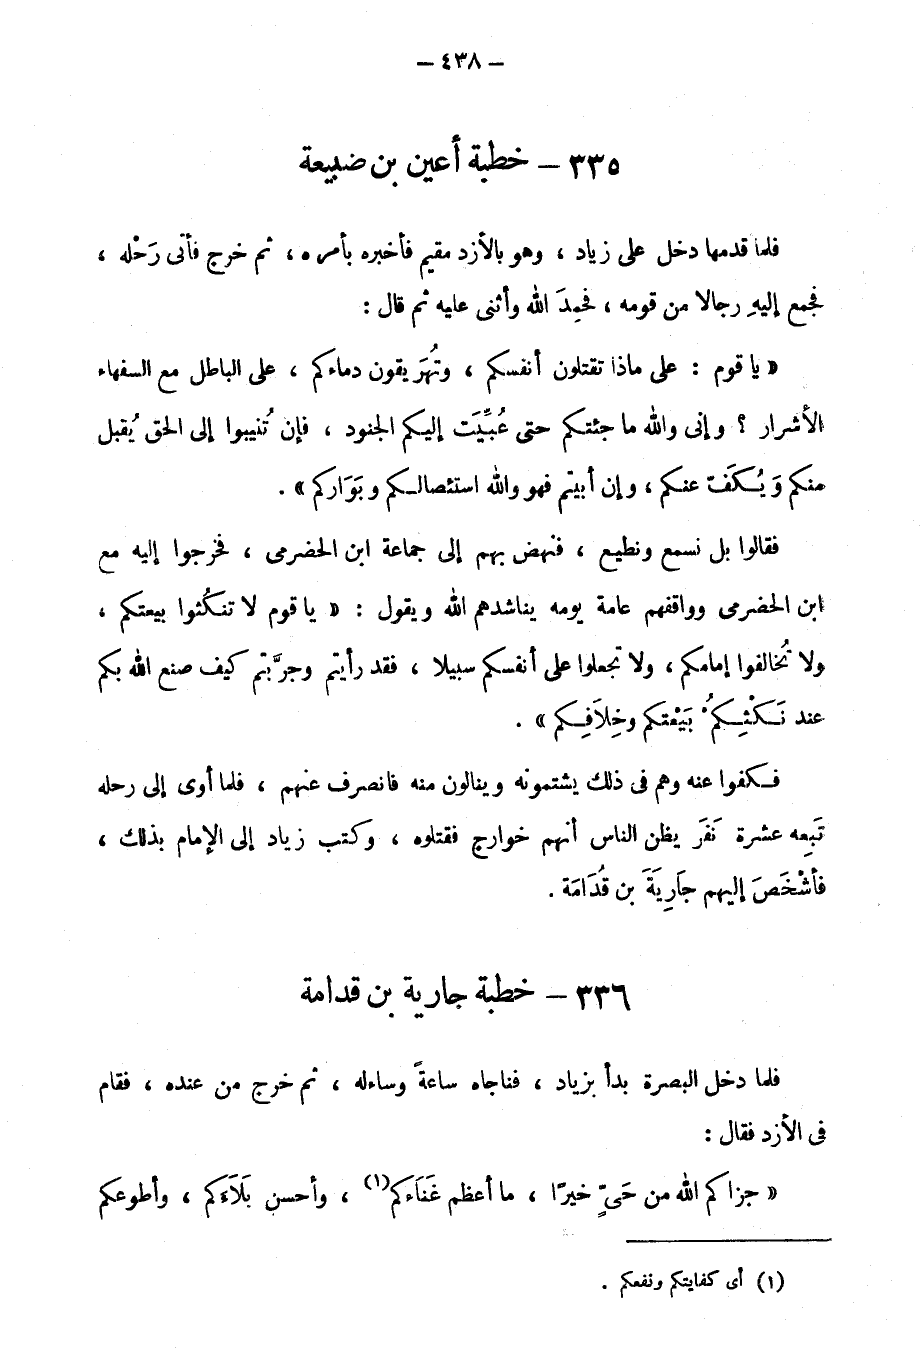 — ٤٣٨ —
٣٣٥ — خطبة أعين بن ضبيعة
فلما قدمها دخل على زياد ، وهو بالأزد مقيم فأخبره بأمره ، ثم خرج فأتى رَحْله ،
فجمع إليهِ رجالا من قومه ، فحمِدَ الله وأثنى عليه ثم قال :
« يا قوم : على ماذا تقتلون أنفسكم ، وتُهَريقون دماءكم ، على الباطل مع السفهاء
الأشرار ؟ وإنى والله ما جئتكم حتى عُبِّيَت إليكم الجنود ، فإن تُنيبوا إلى الحق يُقبل
منكم وَيُكَفّ عنكم ، وإن أبيتم فهو والله استئصالكم وبَوَاركم » .
فقالوا بل نسمع ونطيع ، فنهض بهم إلى جماعة ابن الحضرمى ، فخرجوا إليه مع
ابن الحضرمى وواقفهم عامة يومه يناشدهم الله ويقول : « يا قوم لا تنكُثوا بيعتكم ،
ولا تُخالفوا إمامكم ، ولا تجعلوا على أنفسكم سبيلا ، فقد رأيتم وجرَّبتم كيف صنع الله بكم
عند نَكْثِكُمْ بَيْعتكم وخِلَافِكم » .
فكفوا عنه وهم فى ذلك يشتمونه وينالون منه فانصرف عنهم ، فلما أوى إلى رحله
تَبِعه عشرة نَفَر يظن الناس أنهم خوارج فقتلوه ، وكتب زياد إلى الإمام بذلك ،
فأشْخَصَ إليهم جَارِيَةَ بن قُدَامَة .
٣٣٦ — خطبة جارية بن قدامة
فلما دخل البصرة بدأ بزياد ، فناجاه ساعةً وساءله ، ثم خرج من عنده ، فقام
فى الأزد فقال :
« جزاكم الله من حَىٍّ خيرًا ، ما أعظم غَنَاءَكم(١) ، وأحسن بَلَاءَكم ، وأطوعكم
(١) أى كفايتكم ونفعكم .